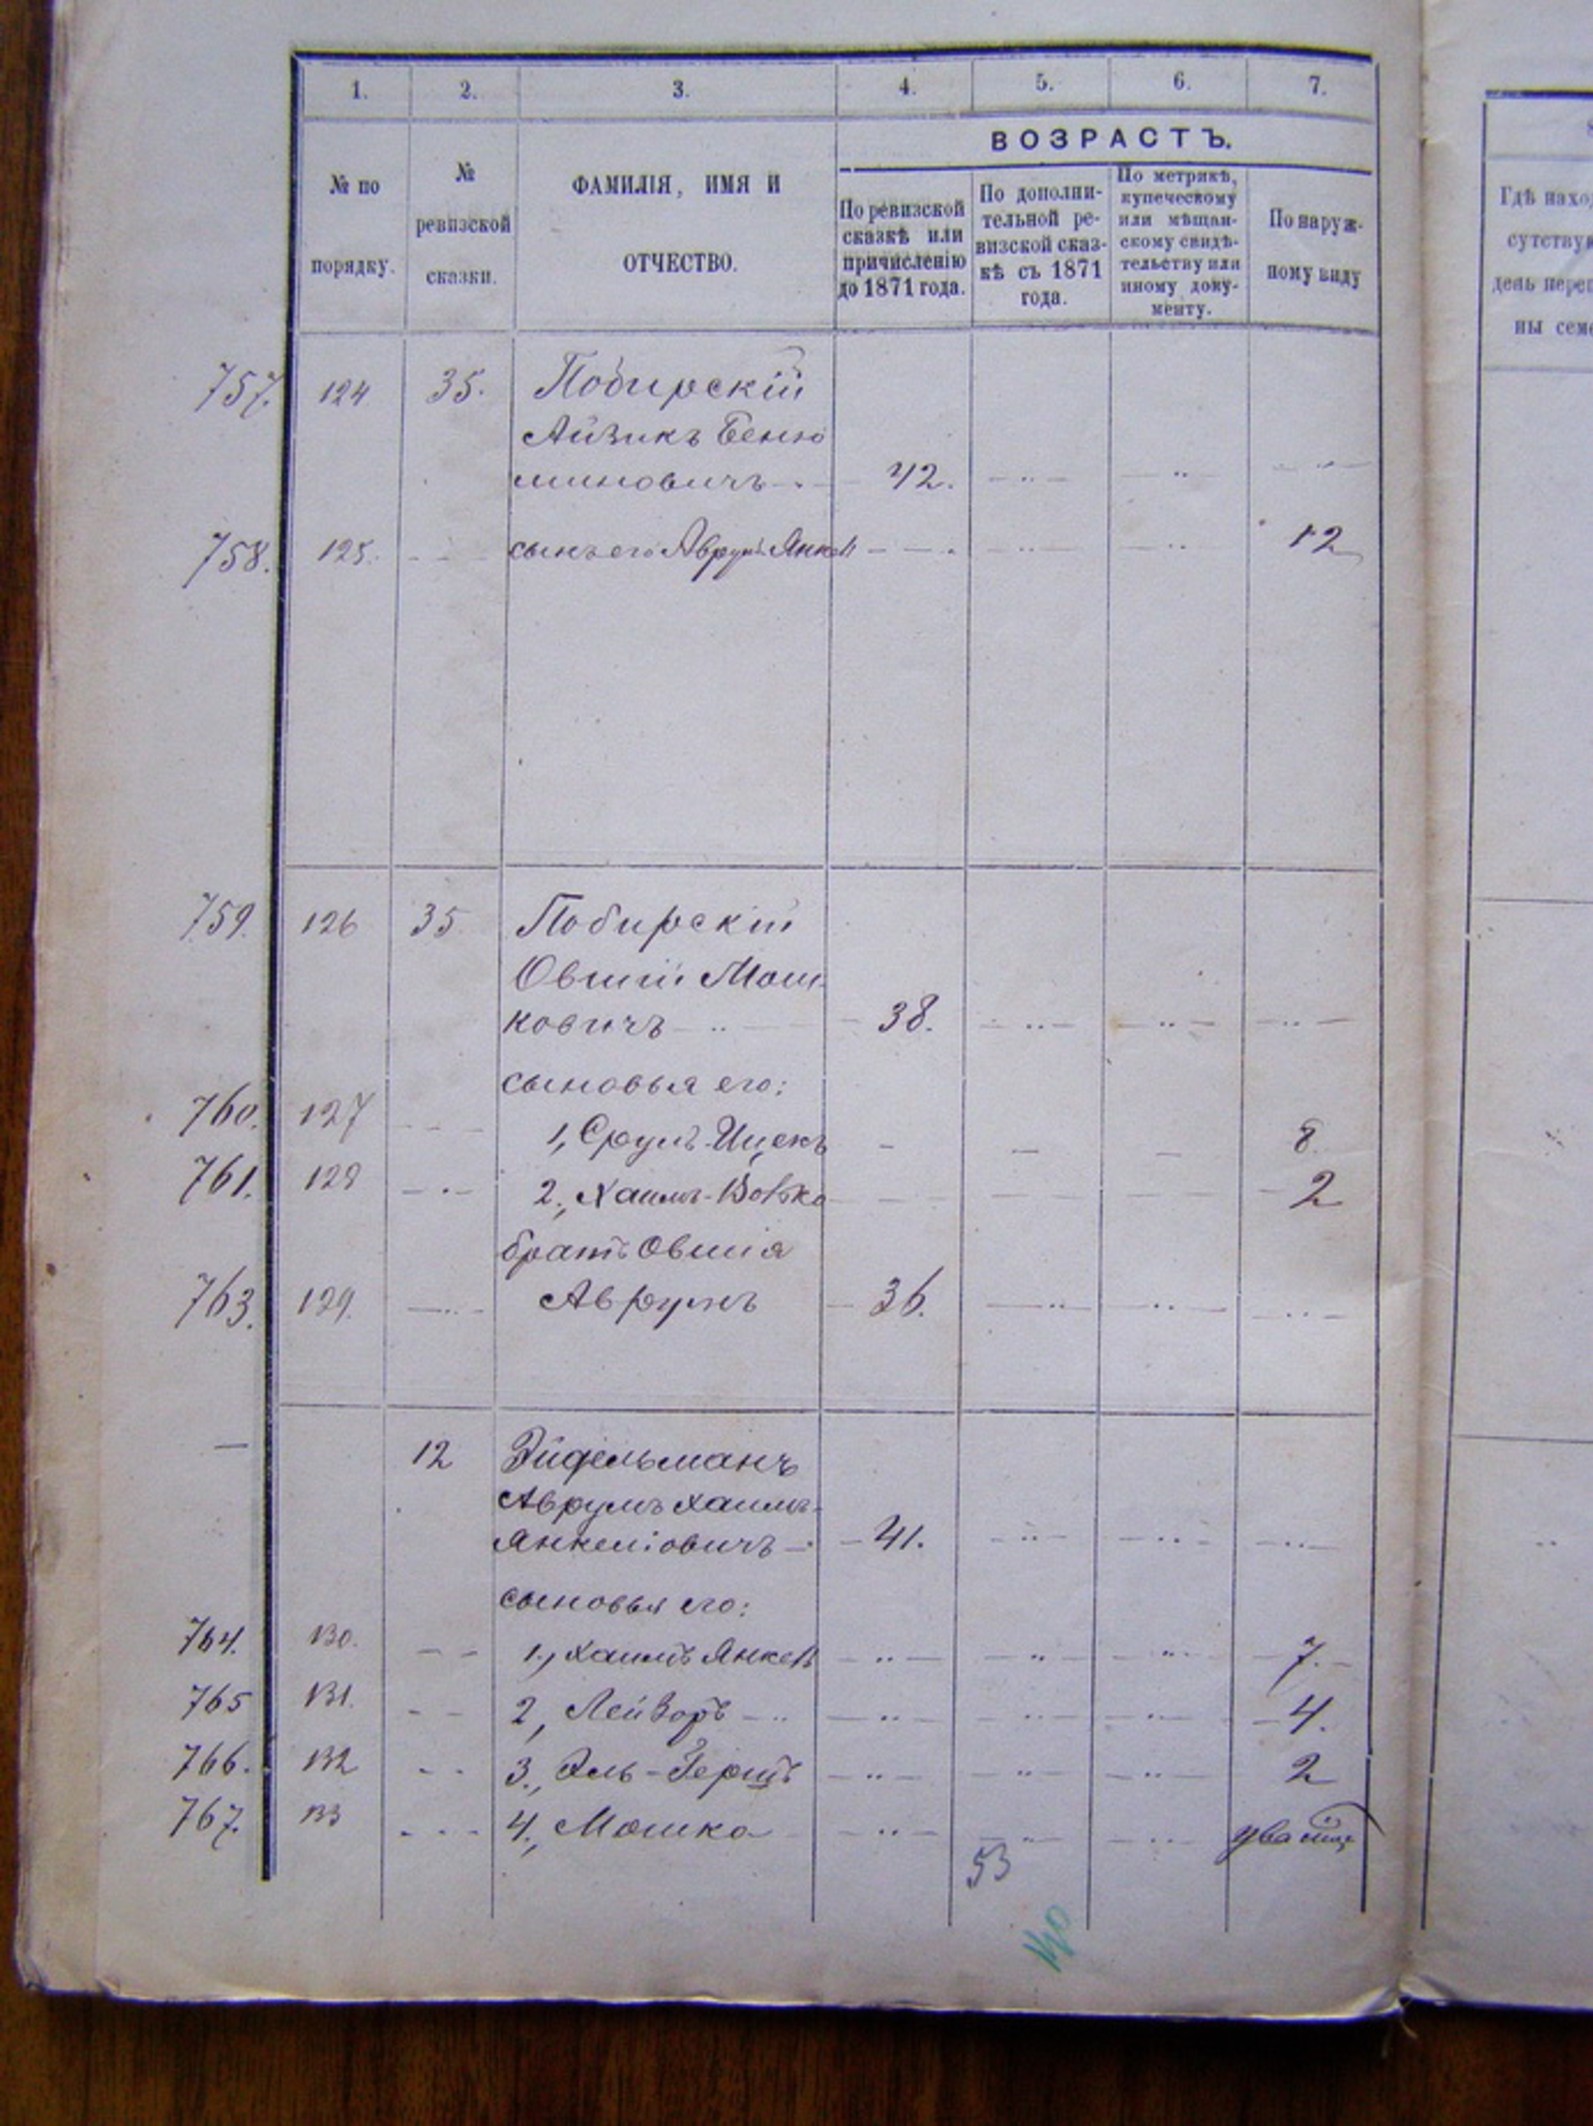 1. 2. 3. 4. 5. 6. 7.
ВОЗРАСТЪ.
№ по
порядку.
№
ревизской
сказки.
ФАМИЛІЯ, ИМЯ И
ОТЧЕСТВО.
По ревизской
сказкѣ или
причисленію
до 1871 года.
По дополни-
тельной ре-
визской сказ-
кѣ съ 1871
года.
По метрикѣ,
купеческому
или мѣщан-
скому свидѣ-
тельству или
иному доку-
менту.
По наруж-
ному виду
757. 124 35. Побирскій
Айзикъ Беню
миновичъ 42.
758. 125. сынъ его Аврумъ Янкел 12
759. 126 35 Побирскій
Овшій Мош
ковичъ 38.
сыновья его:
760. 127 1, Сруль-Ицекъ 8
761. 128 2., Хаимъ-Вовко 2
братъ Овшія
763. 129. Аврумъ 36.
12 Эйдельманъ
Аврумъ Хаимъ-
Янкеліовичъ 41.
сыновья его:
764. 130. 1., Хаимъ Янкел 7.
765 131. 2, Лейзоръ 4.
766. 132 3., Эль-Гершъ 2
767. 133 4., Мошко два
53
Гдѣ нахо
сутствую
день переп
ны семе